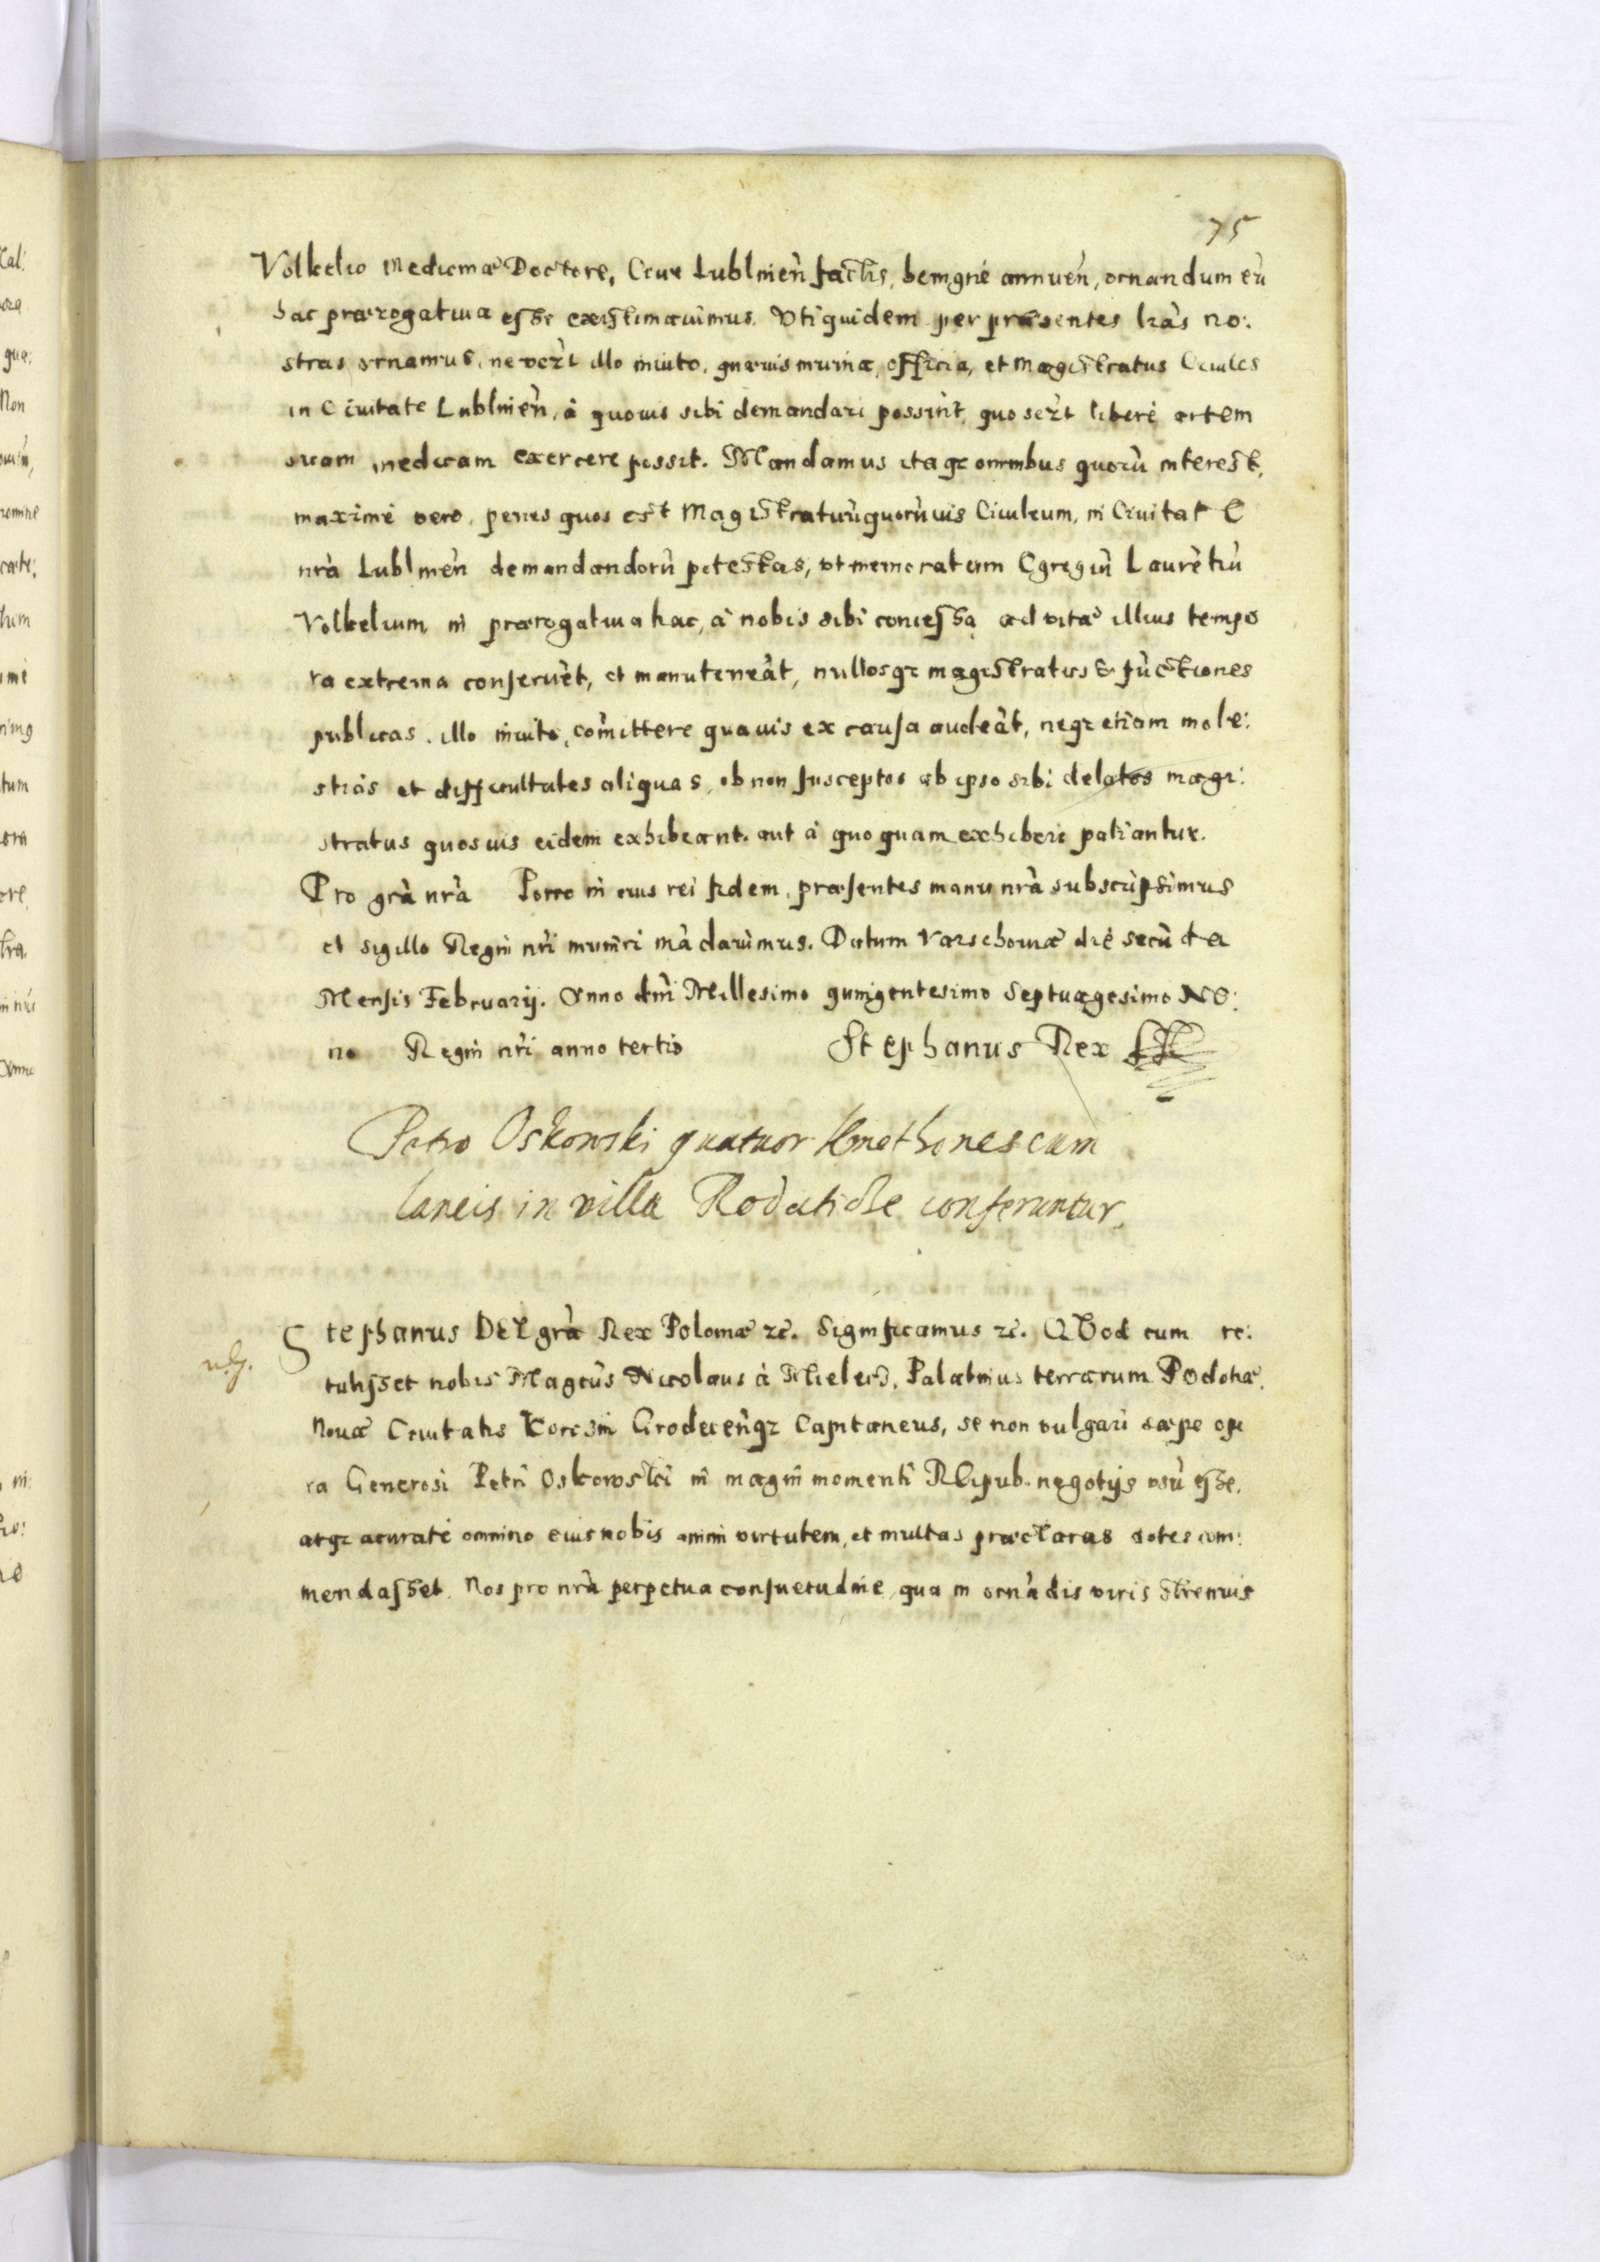 75
Volkelio Medicinæ Doctore, Ciue Lublineñ factis, benignè annueñ, ornandum eũ
hac prærogatiua esse existimauimus. Vti quidem per præsentes l̃ras no:
stras ornamus, ne vez̃t illo inuito, quæuis munia, officia, et Magistratus Ciuiles
in Ciuitate Lublineñ, à quouis sibi demandari possint, quo sez̃t liberè artem
suam medicam exercere possit. Mandamus itaqz omnibus quorũ interest,
maximè vero, penes quos est Magistratuũ quorũuis Ciuilium, in Ciuitate
nr̃a Lublineñ demandandorũ potestas, vt memoratum Egregiũ Laurẽtiũ
Volkelium in prærogatiua hac, à nobis sibi concessa ad vitæ illius tempo
ra extrema conseruẽt, et manuteneãt, nullosqz magistratus & fũctiones
publicas illo inuito, com̃ittere quauis ex causa audeãt, neqz etiam mole:
stias et difficultates aliquas, ob non susceptos ab ipso sibi delatos magi:
stratus quosuis eidem exhibeant, aut à quoquam exhiberi patiantur.
Pro gr̃a nr̃a Porro in cuius rei fidem, præsentes manu nr̃a subscripsimus
et sigillo Regni nr̃i muniri mãdauimus. Datum Varschouiæ diè secũda
Mensis Februarij. Anno dñi Millesimo quingentesimo Septuagesimo No:
no Regni nr̃i anno tertio Stephanus Rex
Petro Oskowski quatuor Kmethones cum
laneis in villa Rodaticze conferuntur.
Stephanus DEI gr̃a Rex Poloniæ zc̃. Significamus zc̃. QVod cum re:
tulisset nobis Magcũs Nicolaus à Mielecz, Palatinus terrarum Podoliæ,
Nouæ Ciuitatis Korczin Grodecenqz Capitaneus, se non vulgari sæpe ope
ra Generosi Petri Oskowski in magni momenti REipub. negotijs vsũ esse,
atqz accuratè omnino eius nobis animi virtutem, et multas præclaras dotes com:
mendasset. Nos pro nr̃a perpetua consuetudine, qua in ornãdis viris strenuis